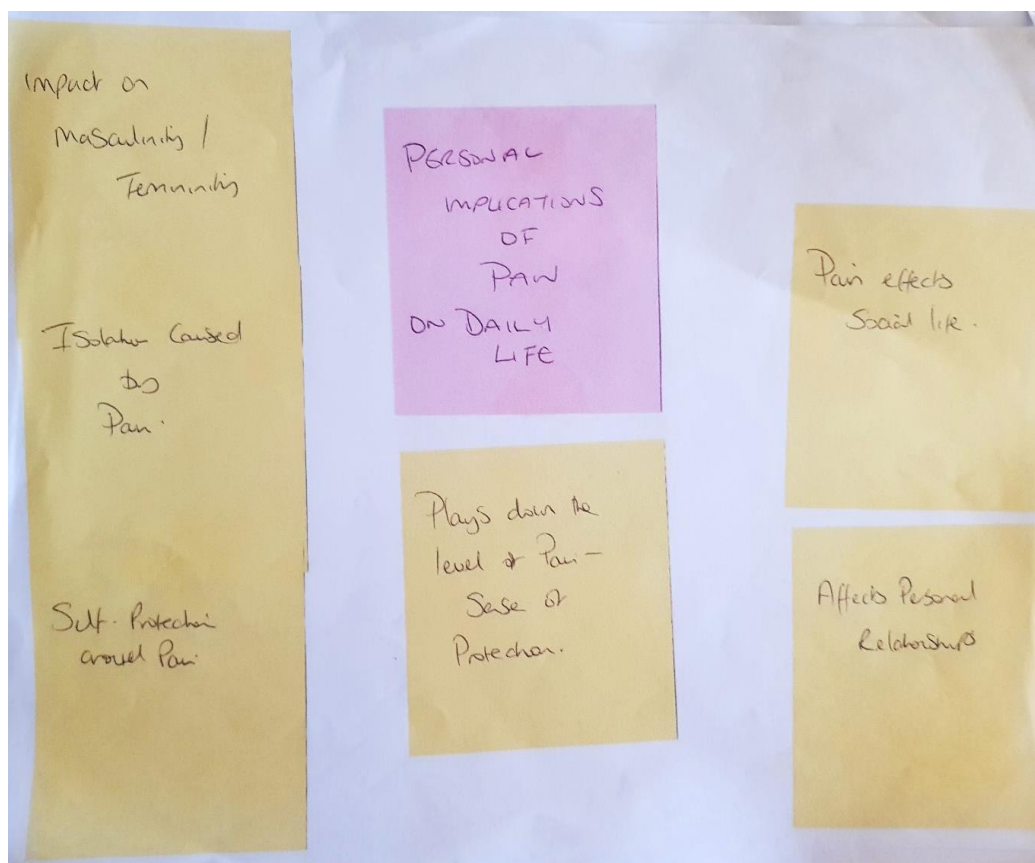 Impact on
Masculinity /
Femininity
Isolation Caused
by
Pain.
Self-Protection
around Pain
PERSONAL
IMPLICATIONS
OF
PAIN
ON DAILY
LIFE
Plays down the
level of Pain -
Sense of
Protection.
Pain effects
Social life.
Affects Personal
Relationships